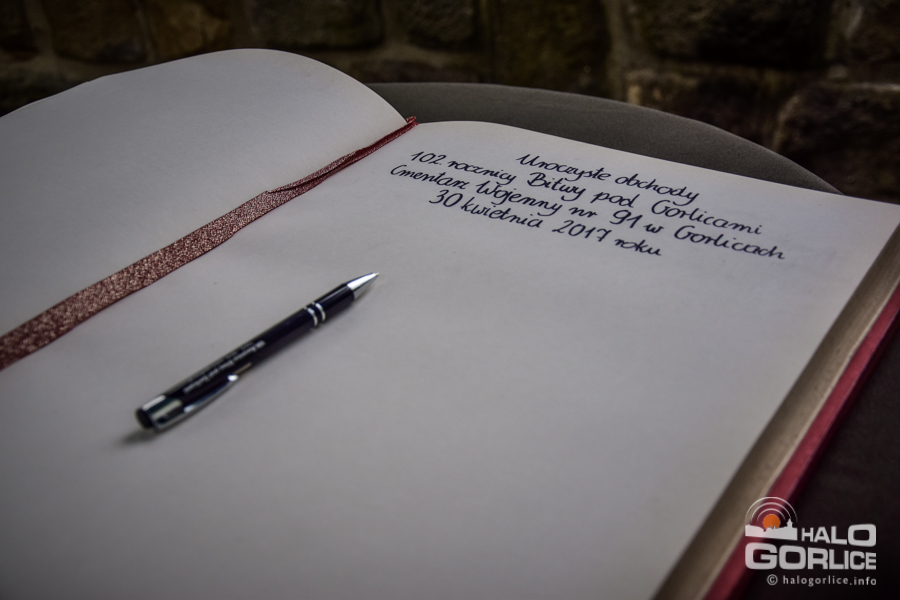 Uroczyste obchody
102 rocznicy Bitwy pod Gorlicami
Cmentarz Wojenny nr 91 w Gorlicach
30 kwietnia 2017 roku
HALO
GORLICE
© halogorlice.info